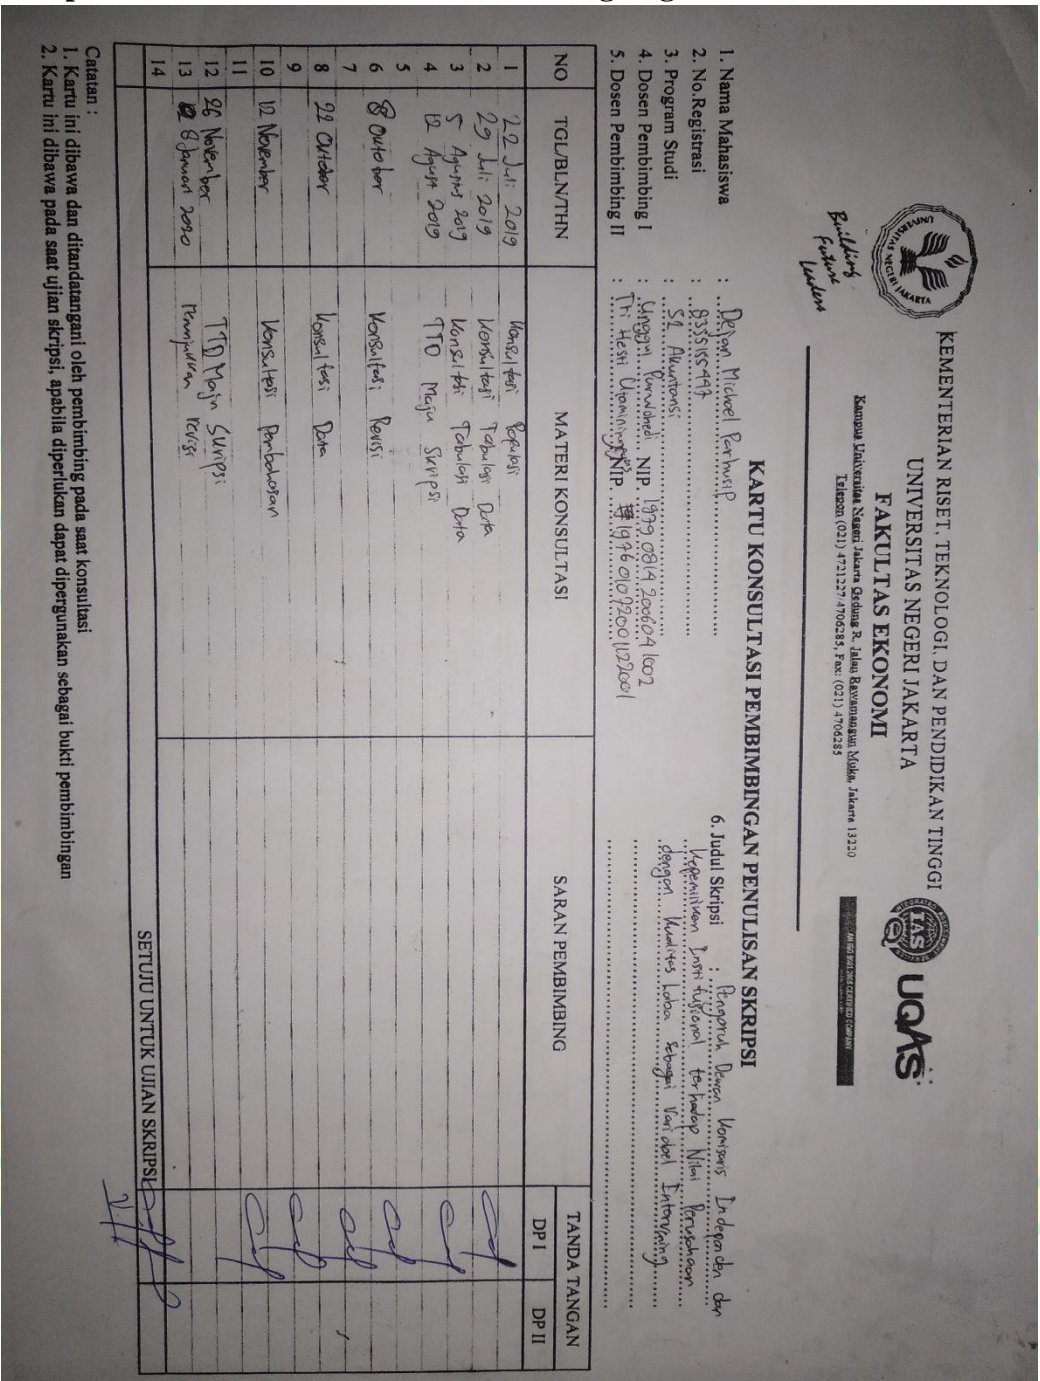 KEMENTERIAN RISET, TEKNOLOGI, DAN PENDIDIKAN TINGGI
UNIVERSITAS NEGERI JAKARTA
FAKULTAS EKONOMI
Kampus Universitas Negeri Jakarta Gedung R, Jalan Rawamangun Muka, Jakarta 13220
Telepon (021) 4721227/4706285, Fax: (021) 4706285
UNIVERSITAS NEGERI JAKARTA
Building
Future
Leaders
IAS
UQAS
AN ISO 9001:2008 CERTIFIED COMPANY
KARTU KONSULTASI PEMBIMBINGAN PENULISAN SKRIPSI
1. Nama Mahasiswa : Dejan Michael Parhusip
2. No.Registrasi : 8335155447
3. Program Studi : S1 Akuntansi
4. Dosen Pembimbing I : Unggul Purwohedi NIP. 197908142006041002
5. Dosen Pembimbing II : Tri Hesti Utaminingtyas NIP. 197601072001122001
6. Judul Skripsi : Pengaruh Dewan Komisaris Independen dan
Kepemilikan Institusional terhadap Nilai Perusahaan
dengan Kualitas Laba sebagai Variabel Intervening
NO TGL/BLN/THN MATERI KONSULTASI SARAN PEMBIMBING TANDA TANGAN
DP I DP II
1 22 Juli 2019 Konsultasi Populasi
2 29 Juli 2019 Konsultasi Tabulasi Data
3 5 Agustus 2019 Konsultasi Tabulasi Data
4 12 Agust 2019 TTD Maju Skripsi
5
6 8 Outober Konsultasi Revisi
7
8 22 Outober Konsultasi Data
9
10 12 November Konsultasi Pembahasan
11
12 26 November TTD Maju Skripsi
13 8 Januari 2020 Penunjukkan revisi
14
SETUJU UNTUK UJIAN SKRIPSI
Catatan :
1. Kartu ini dibawa dan ditandatangani oleh pembimbing pada saat konsultasi
2. Kartu ini dibawa pada saat ujian skripsi, apabila diperlukan dapat dipergunakan sebagai bukti pembimbingan